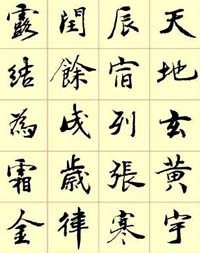 天地玄黃宇
辰宿列張寒
閏餘成歲律
露結為霜金